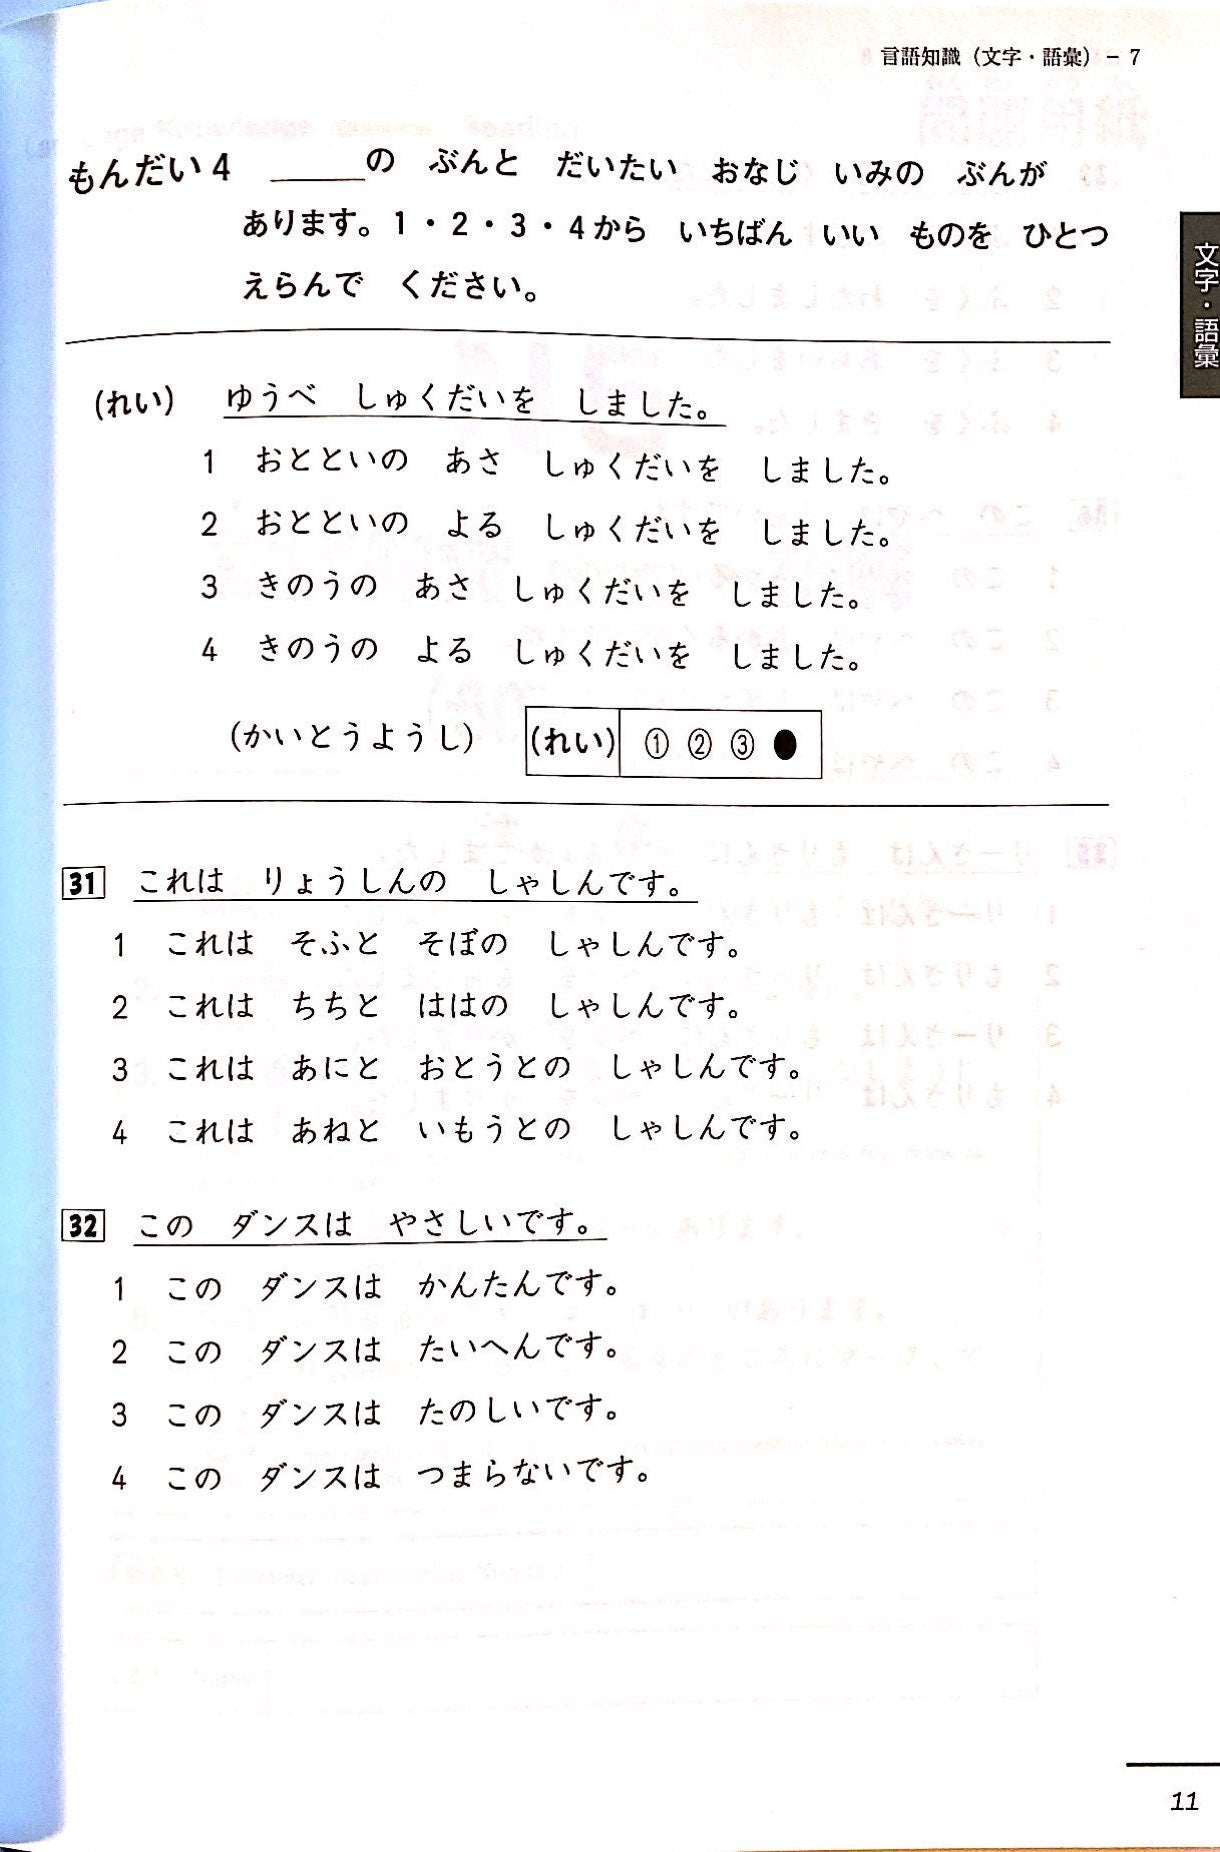 言語知識（文字・語彙）－ 7
もんだい4　＿＿＿の　ぶんと　だいたい　おなじ　いみの　ぶんが
あります。1・2・3・4から　いちばん　いい　ものを　ひとつ
えらんで　ください。
文字・語彙
(れい)　ゆうべ　しゅくだいを　しました。
1　おとといの　あさ　しゅくだいを　しました。
2　おとといの　よる　しゅくだいを　しました。
3　きのうの　あさ　しゅくだいを　しました。
4　きのうの　よる　しゅくだいを　しました。
(かいとうようし)　(れい)　①　②　③　●
31　これは　りょうしんの　しゃしんです。
1　これは　そふと　そぼの　しゃしんです。
2　これは　ちちと　ははの　しゃしんです。
3　これは　あにと　おとうとの　しゃしんです。
4　これは　あねと　いもうとの　しゃしんです。
32　この　ダンスは　やさしいです。
1　この　ダンスは　かんたんです。
2　この　ダンスは　たいへんです。
3　この　ダンスは　たのしいです。
4　この　ダンスは　つまらないです。
11